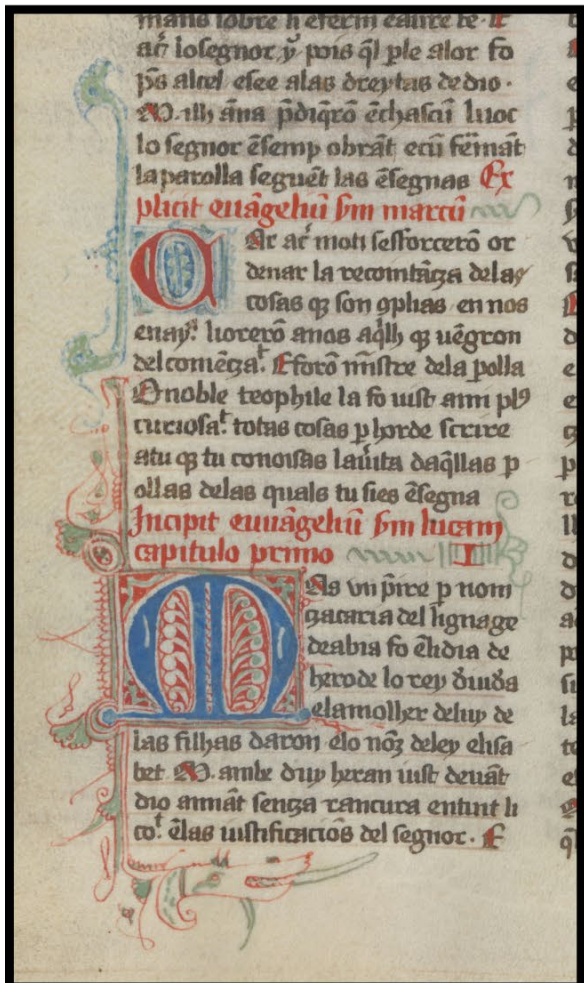 mans sobre li eferm eaure be · E
ac̃ lo segnor ỹ pois q̃l ple alor fo
p̃s alcel esee alas dreytas de dio ·
M. ilh ãna p̃diq̃rõ ẽchascũ luoc
lo segnor ẽsemp obrãt ecũ fẽmãt
la parolla seguẽt las ẽsegnas Ex
plicit euãgeliũ s̃m marcũ
CAr ac̃ moti sesforcerõ or
denar la recomtãça delas
cosas q̃ son ꝯplias en nos
enayᵃ. liorerõ anos aq̃lh q̃ uẽgron
del comẽçaᵗ. E forõ mĩstre dela polla
O noble teophile la fo uist ami plꝰ
curiosaᵗ. totas cosas p horde scrire
atu q̃ tu conoisas lauĩta daq̃llas p
ollas delas quals tu sies ẽsegna
Incipit euuãgeliũ s̃m lucam
capitulo primo I
MAs vn p̃ire p nom
zacaria del lignage
de abia fo ẽl dia de
herode lo rey d̃ iud̃a
e la molher de luy de
las filhas daron · e lo nõz de ley elisa
bet M. ambe duy heran iust deuãt
dio annãt senza rancura en tuit li
coᵗ. ẽ las iustificaciõs del segnor · E